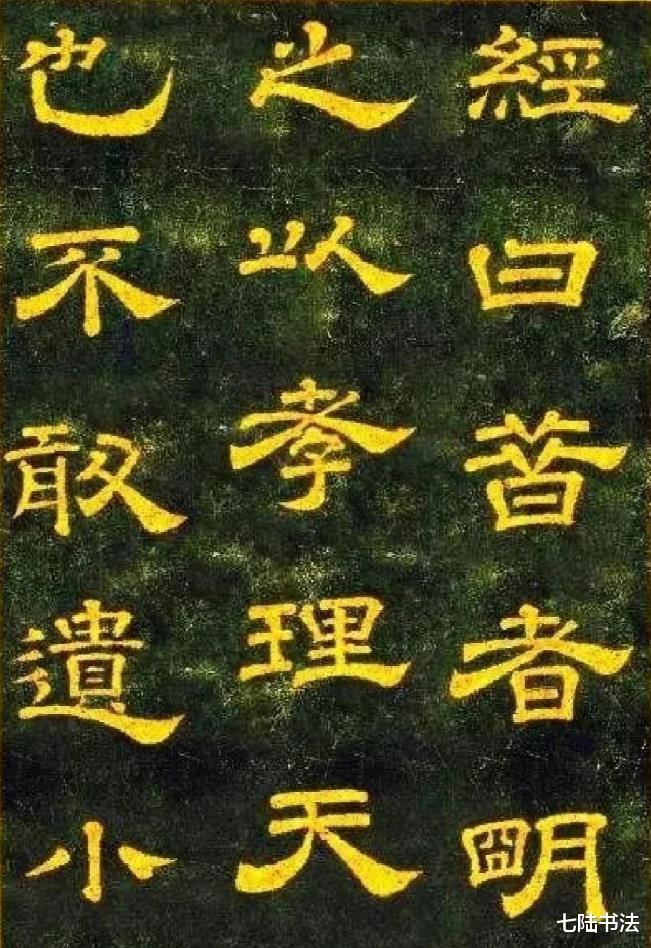 經曰昔者明
之以孝理天
也不敢遺小
七陆书法